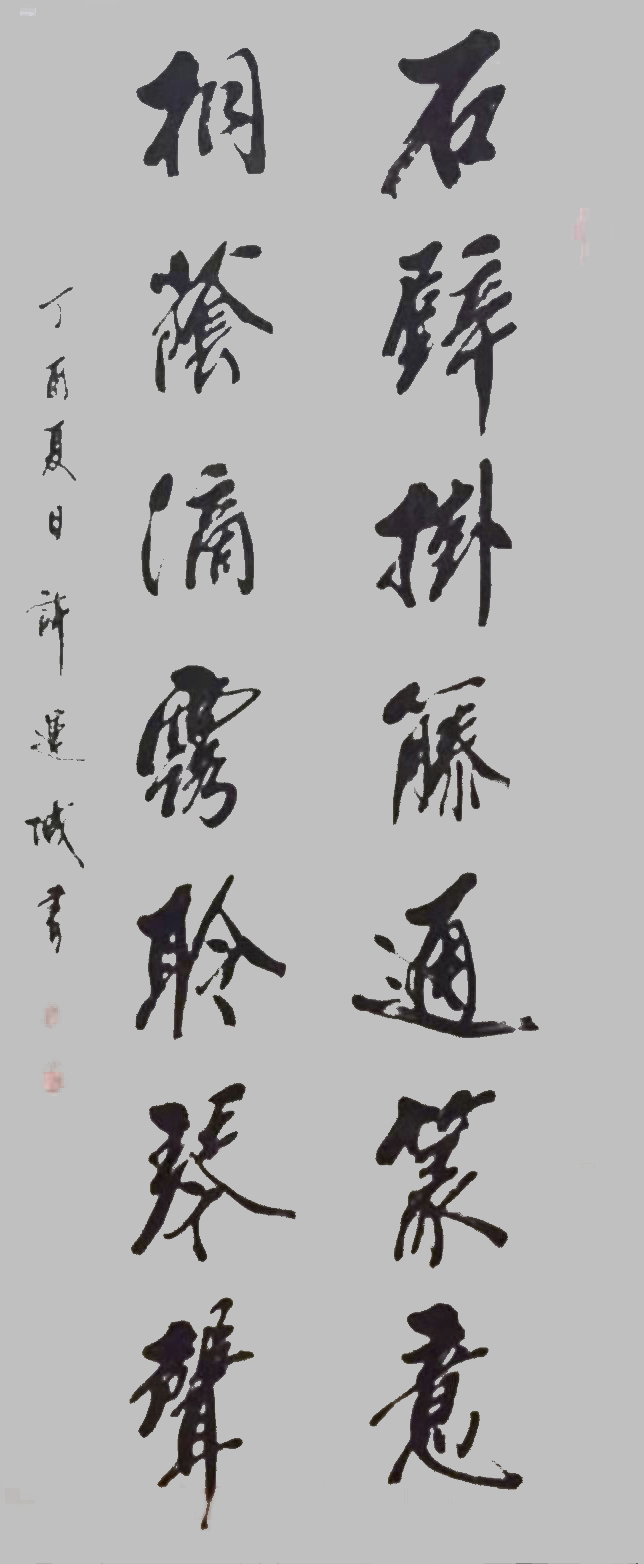 石壁掛藤通篆意
桐蔭滴露聆琴聲
丁酉夏日許運城書